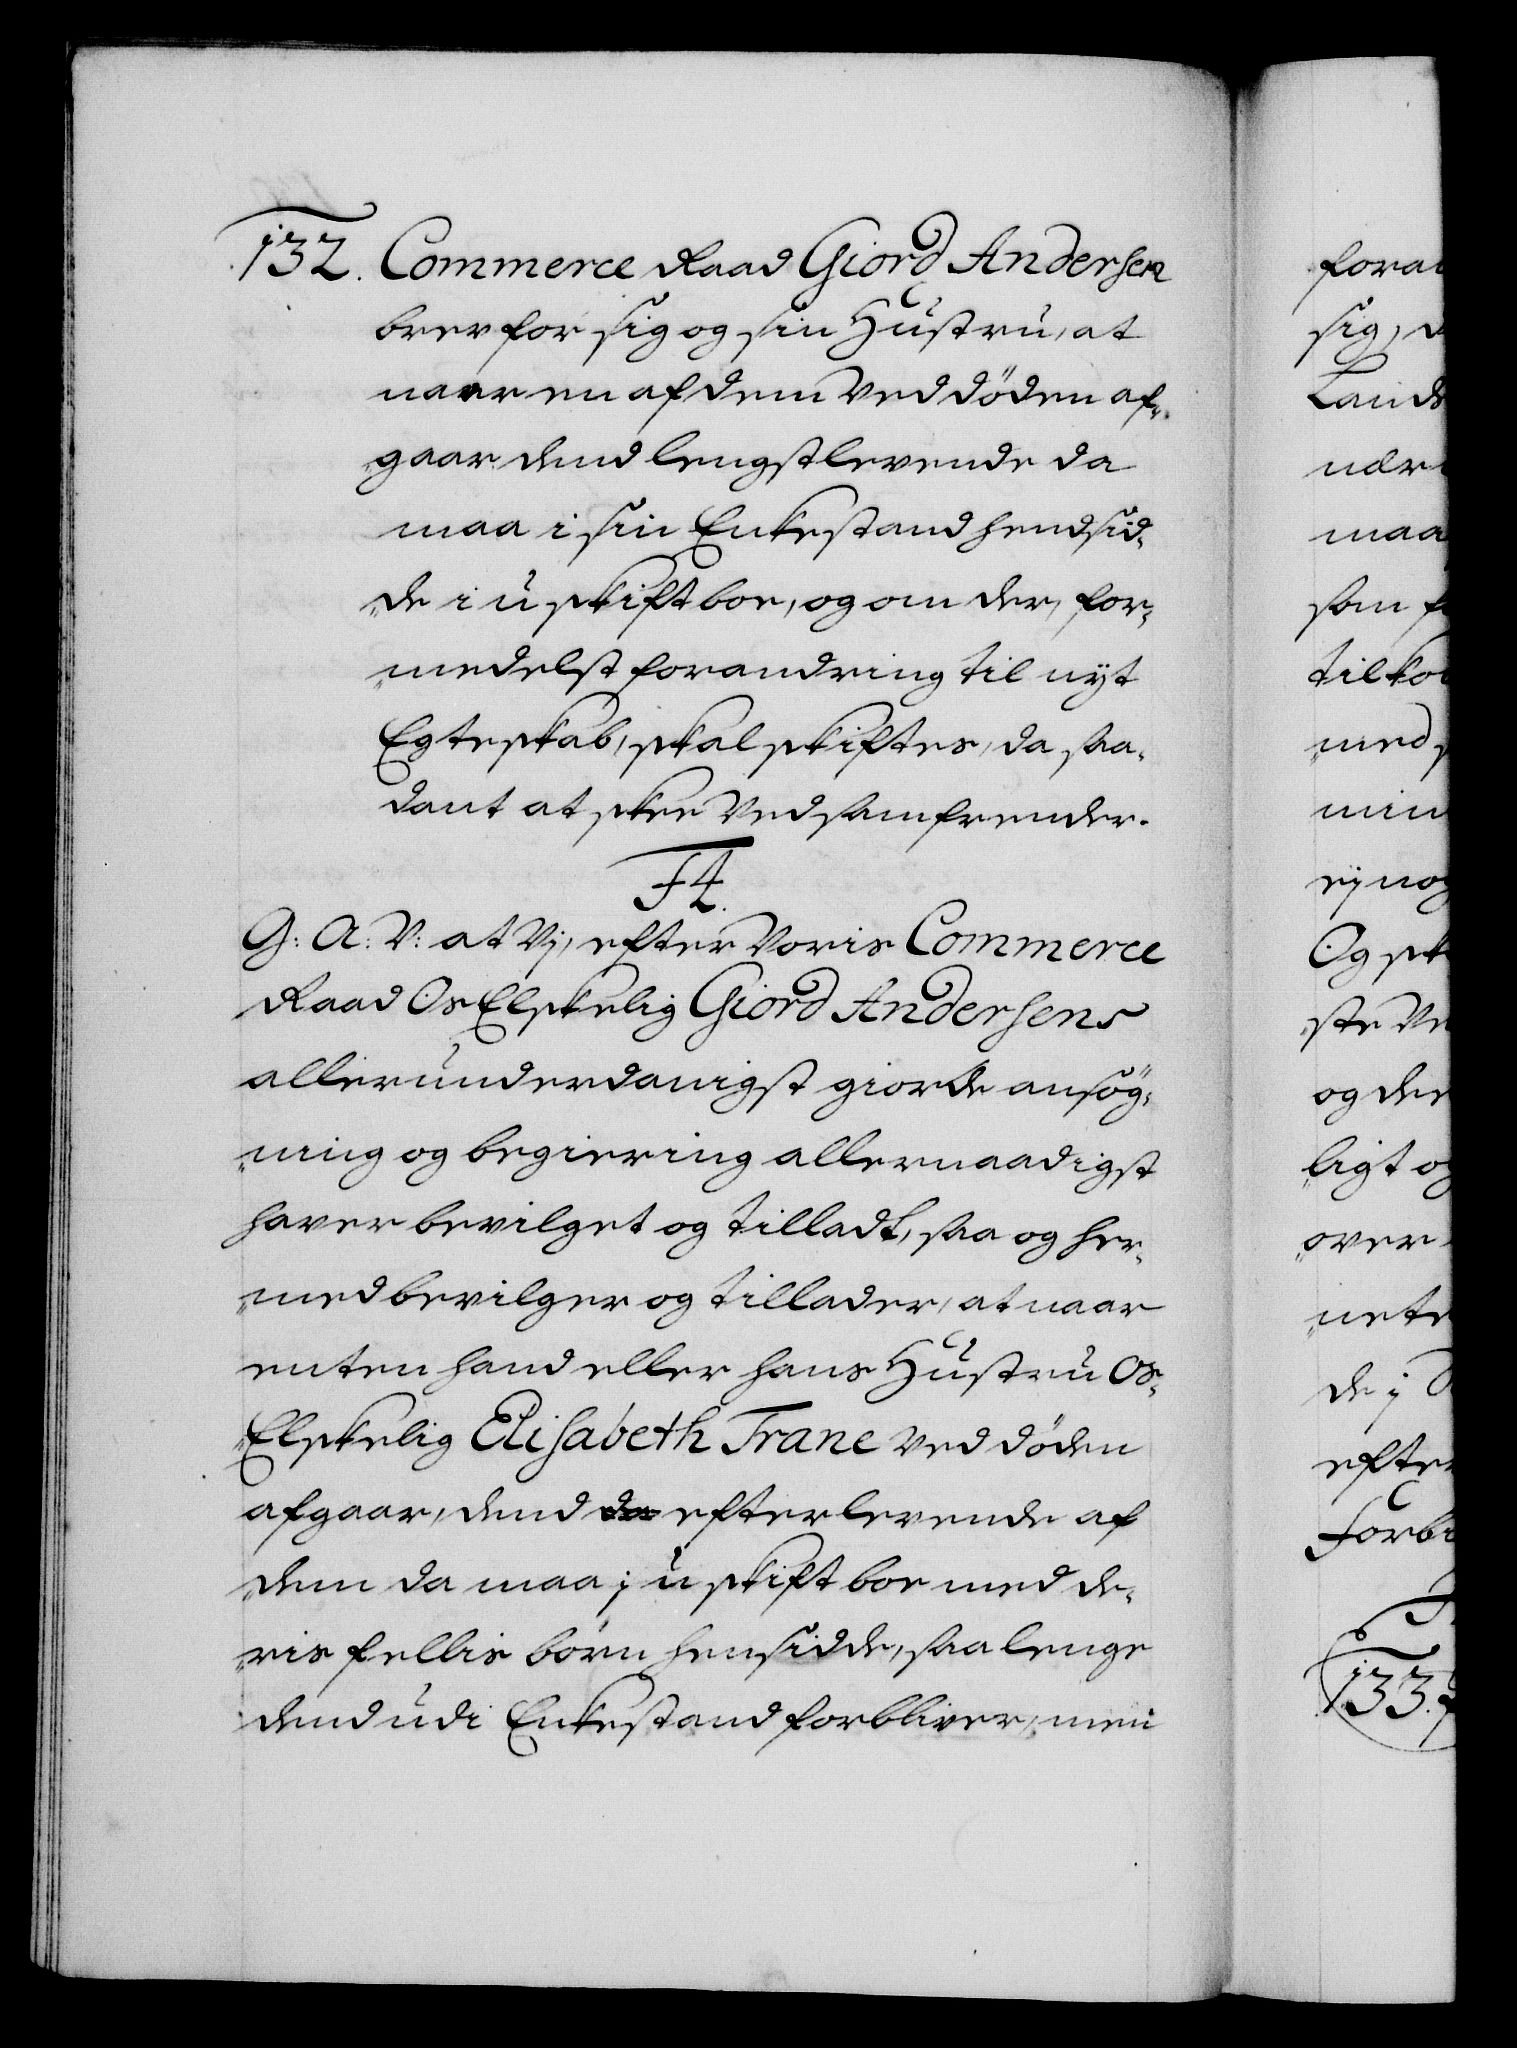 132. Commerce Raad Giord Andersen
brev for sig og sin Hustru, at
naar en af dem ved döden af-
gaar dend lengstlevende da
maa i sin Enkestand hensid-
de i uskift boe, og om der, for-
medelst forandring til nÿt
Egteskab, skal skiftes, da saa-
dant at skee ved samfrender.
F4.
G: A: V: at Vj, efter Voris Commerce
Raad Os Elskelig Giord Andersens
allerunderdanigst giorde ansög-
ning og begiering allernaadigst
haver bevilget og tilladt, saa og her-
med bevilger og tillader, at naar
enten hand eller hans Hustru Os-
Elskelig Elisabeth Trane ved döden
afgaar, dend da efterlevende af
dem da maa j uskift boe med de-
ris fellis börn hensidde, saa lenge
dend udi Enkestand forbliver, men
foran
sig, d
Lands
nær
maa
som f
tilko
med s
min
eÿ nog
Og sk
ste Ve
og der
ligt og
over
nete
de j
efter
Forbi
133.